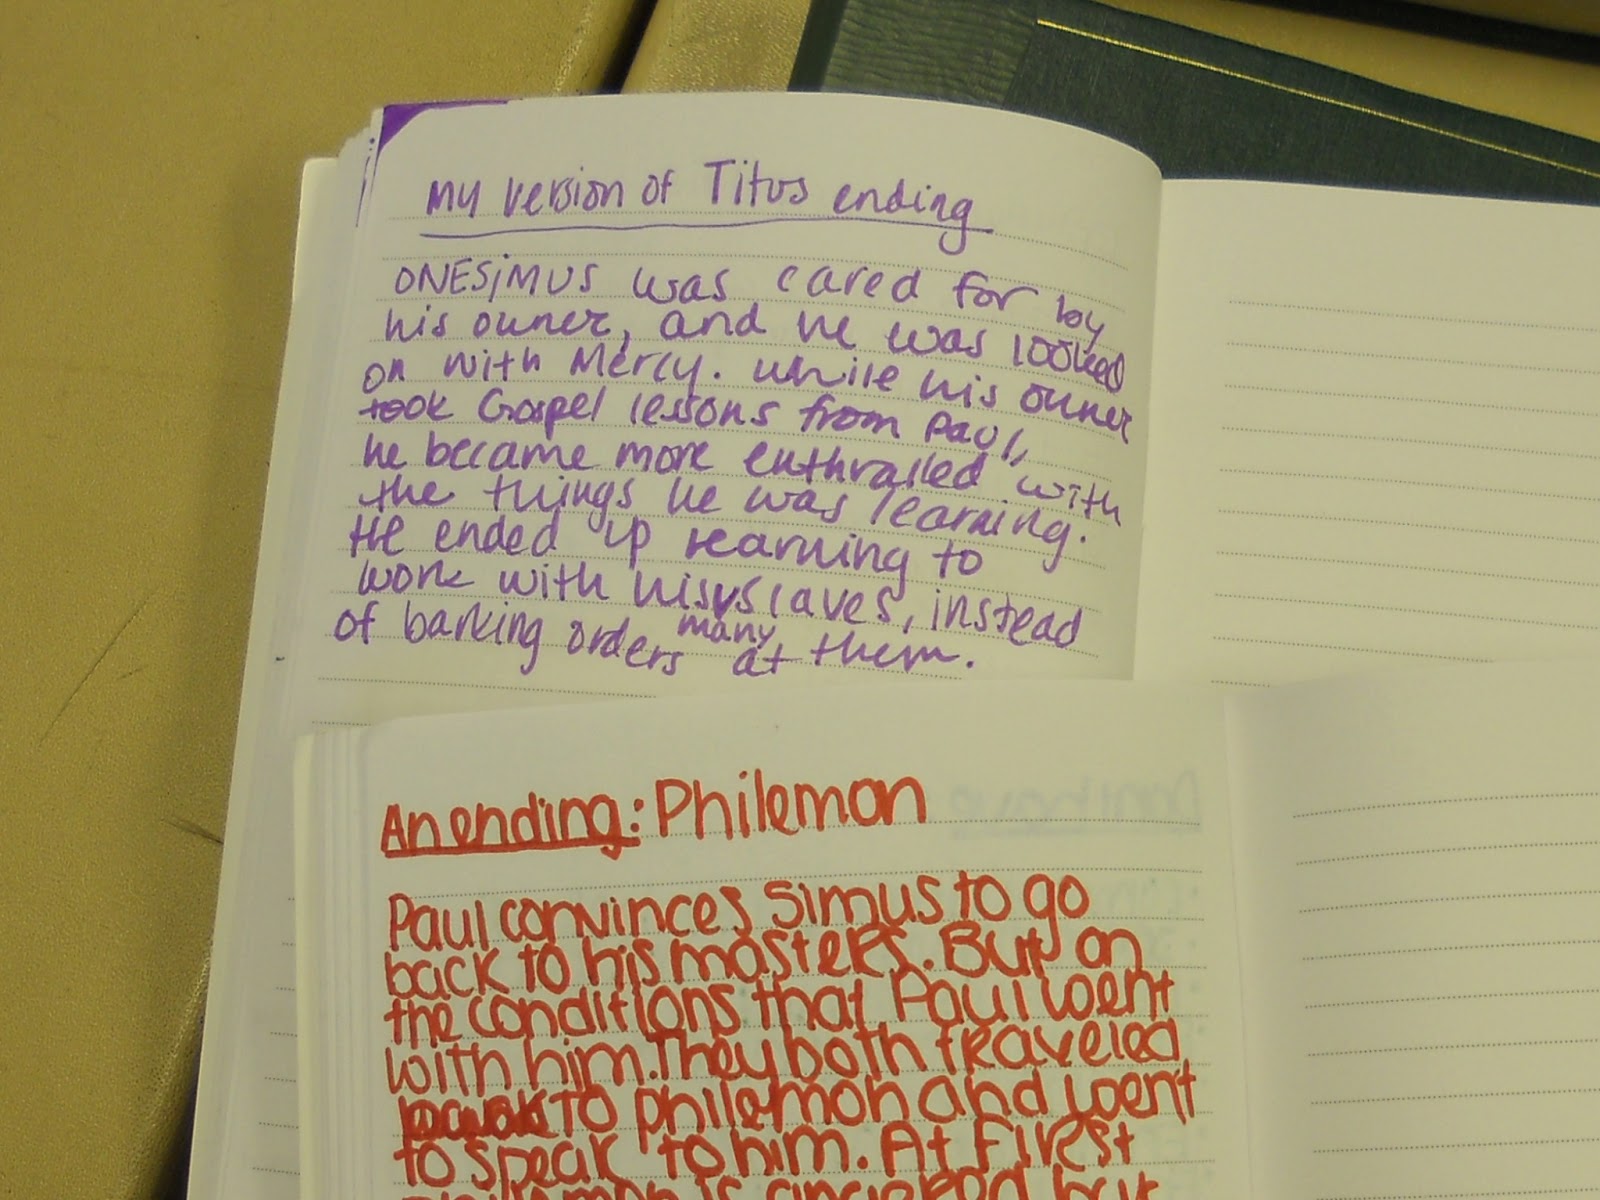 My version of Titus ending
ONESiMUS was cared for by
his owner, and he was looked
on with Mercy. while his owner
took Gospel lessons from Paul,
he became more enthralled with
the things he was learning.
He ended up learning to
work with his slaves, instead
of barking orders many at them.
An ending: Philemon
Paul convinces Simus to go
back to his masters. But on
the conditions that Paul went
with him. They both traveled
to philemon and went
to speak to him. At First
philemon is angered but